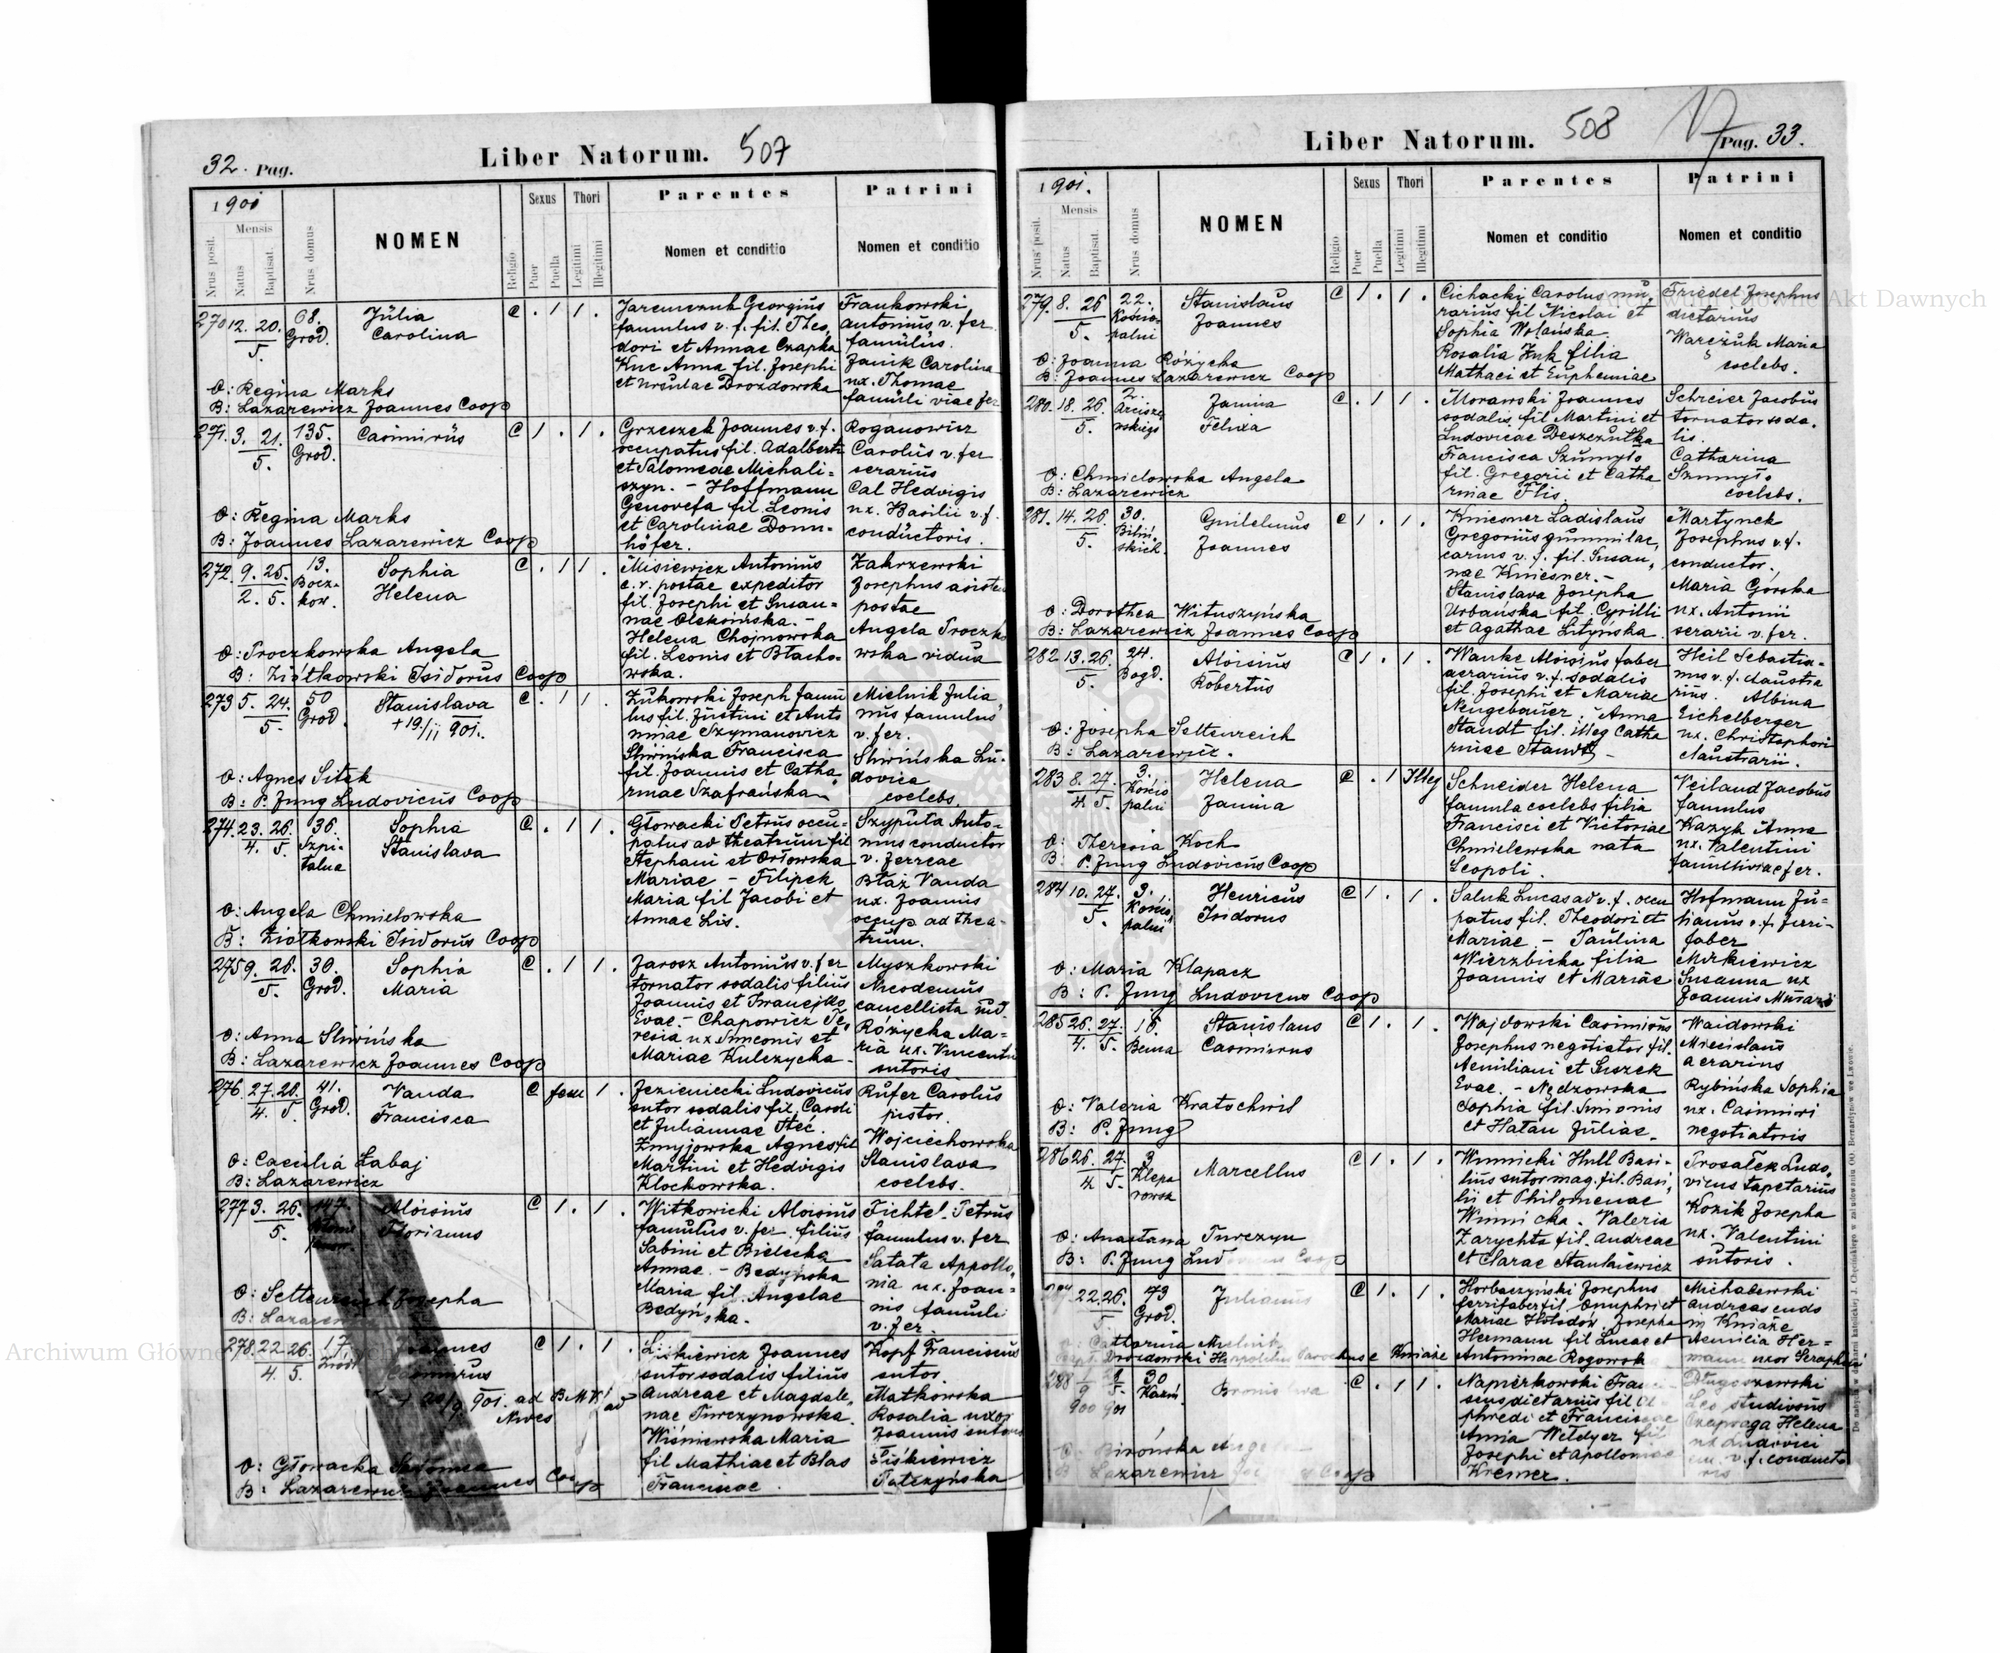 32. Pag.
Liber Natorum. 507
1901
Nrus posit.
Mensis
Natus
Baptisat.
Nrus domus
NOMEN
Religio
Sexus
Puer
Puella
Thori
Legitimi
Illegitimi
Parentes
Nomen et conditio
Patrini
Nomen et conditio
270 12. 20. 5. 68. Grod. Julia Carolina
Jaremczuk Georgius
famulus v. f. fil. Theo
dori et Annae Czapka
Kuc Anna fil. Josephi
et Ursulae Drozdowska
Frankowski
Antonius v. fer.
famulus.
Janik Carolina
ux. Thomae
famuli viae fer
O: Regina Marks
B: Lazarewicz Joannes Coop
271. 3. 21. 5. 135. Grod. Casimirus
Grzeszek Joannes v. f.
occupatus fil. Adalberti
et Salomeae Michali=
szyn. - Hoffmann
Genovefa fil Leonis
et Carolinae Donn-
höfer.
Roganowicz
Carolus v. fer
serarius
Cal Hedvigis
ux. Basilii v. f.
conductoris.
O: Regina Marks
B: Joannes Lazarewicz Coop
272. 9. 25. 2. 5. 13. Sophia Helena
Misiewicz Antonius
c. r. postae expeditor
fil. Josephi et Susan=
nae
Helena Chojnowska
fil. Leonis et Błacho=
wska.
Zakrzewski
Josephus
postae
Angela Troczko
wska vidua
O: Troczkowska Angela
B: Ziółkowski Isidorus Coop
273 5. 24. 5. 50 Grod. Stanislava
+ 19/11 901.
Żukowski Joseph famu
lus fil. Justini et Anto
ninae Szymanowicz
Śliwińska Francisca
fil. Joannis et Catha
rinae Szafrańska
Mielnik Julia
nus famulus
v. fer.
Śliwińska Lu-
dovica
coelebs.
O: Agnes Sitek
B: P. Jung Ludovicus Coop
274. 23. 26. 4. 5. 36. Szpi- talna Sophia Stanislava
Głowacki Petrus occu-
patus ad theatrum fil
Stephani et Orłowska
Mariae - Filipek
Maria fil Jacobi et
Annae Lis.
Szyputa Anto-
nius conductor
v. ferreae
Błaż Vanda
ux. Joannis
occup ad thea-
trum.
O: Angela Chmielowska
B: Ziółkowski Isidorus Coop
275 9. 26. 5. 30. Grod. Sophia Maria
Jarosz Antonius v. fer
tornator sodalis filius
Joannis et
Evae. - Chapowicz Te,
resia ux Simeonis et
Mariae Kulczycka -
Myszkowski
Nicodemus
cancellista
Różycka Ma-
ria ux. Vincentii
sutoris
O: Anna Śliwińska
B: Lazarewicz Joannes Coop
276. 27. 26. 4. 5 41. Grod. Vanda Francisca
Jezieniecki Ludovicus
sutor sodalis fil. Caroli
et Juliannae Steć.
Żmyjowska Agnes fil
Martini et Hedvigis
Klochowska.
Rufer Carolus
pistor.
Wojciechowska
Stanislava
coelebs.
O: Caecilia Łabaj
B: Lazarewicz
277 3. 26. 5. Aloisius Florianus
Witkowicki Aloisius
famulus v. fer. filius
Sabini et Bielecka
Annae. - Bedyńska
Maria fil. Angelae
Bedyńska.
Fichtel Petrus
famulus v. fer
Sałata Appollo,
nia ux. Joan-
nis famuli
v. fer.
O: Settenreich Josepha
B: Lazarewicz
278. 22 26. 4. 5. Joannes Casimirus
Joannes
sutor sodalis filius
Andreae et Magdale,
nae Turczynowska.
Wiśniewska Maria
fil Mathiae et Blas
Franciscae.
Kopf Franciscus
sutor.
Matkowska
Rosalia uxor
Joannis sutoris
O: Głowacka Salomea
B: Lazarewicz Joannes Coop
Liber Natorum. 508
Pag. 33.
1901.
Nrus posit.
Mensis
Natus
Baptisat.
Nrus domus
NOMEN
Religio
Sexus
Puer
Puella
Thori
Legitimi
Illegitimi
Parentes
Nomen et conditio
Patrini
Nomen et conditio
279. 8. 26 5. 22. Kościo- palni Stanislaus Joannes
Cichacki Carolus mu,
rarius fil Nicolai et
Sophia Wolańska
Rosalia Żuk filia
Mathaei et Euphemiae
Friedel Josephus
dietarius
Warczuk Maria
coelebs.
O: Joanna Różycka
B: Joannes Lazarewicz Coop
280. 18. 26. 5. 2. Arcisze wskiego Janina Felixa
Morawski Joannes
sodalis fil Martini et
Ludovicae Deszczutka
Francisca Szumyło
fil. Gregorii et Catha
rinae Flis.
Schreier Jacobus
tornator soda.
lis.
Catharina
Szumyło
coelebs.
O: Chmielowska Angela
B: Lazarewicz
281. 14. 26. 5. 30. Biliń- skich Guilelmus Joannes
Kniesner Ladislaus
Gregorius
v. f. fil. Susan,
nae Kniesner. -
Stanislava Josepha
Urbańska fil. Cyrilli
et Agathae Lityńska.
Martynek
Josephus v. f.
conductor.
Maria Górska
ux. Antonii
serarii v. fer.
O: Dorothea Wituszyńska
B: Lazarewicz Joannes Coop
282 13. 26. 5. 24. Bogd. Aloisius Robertus
Wanke Aloisius faber
aerarius v. f. sodalis
fil. Josephi et Mariae
Neugebauer. Anna
Staudt fil. illeg Catha
rinae Staudt -
Heil Sebastia-
nus v. f. claustra
rius. Albina
Eichelberger
ux. Christophori
claustrarii.
O: Josepha Settenreich
B: Lazarewicz.
283 8. 27. 4. 5. 3. Kościo palni Helena Janina Illeg
Schneider Helena
famula coelebs filia
Francisci et Victoriae
Chmielewska nata
Leopoli.
Veiland Jacobus
famulus
Kazyk Anna
ux. Valentini
famuli viae fer.
O: Theresia Koch
B: P. Jung Ludovicus Coop
284 10. 27. 5. 3. Kościo, palni Henricus Isidorus
Saluk Lucas ad v. f. occu
patus fil. Theodori et
Mariae. - Paulina
Wierzbicka filia
Joannis et Mariae
Hofmann Ju-
lianus v. f. ferri-
faber
Mirkiewicz
Susanna ux
Joannis
O: Maria Klapacz
B: P. Jung Ludovicus Coop
285 26. 27. 4. 5. 16. Bema Stanislaus Casimirus
Wajdowski Casimirus
Josephus negotiator fil.
Aemiliani et Suszek
Evae. - Nędzowska
Sophia fil. Simonis
et Hatau Juliae.
Waidowski
Miecislaus
aerarius
Rybińska Sophia
ux. Casimiri
negotiatoris
O: Valeria Kratochwil
B: P. Jung
286 26. 27. 4. 5. 3 Klepa rowsk Marcellus
Winnicki Hull Basi-
lius sutor mag. fil. Basi,
lii et Philomenae
Winnicka. Valeria
Zarychta fil. Andreae
et Clarae Stankiewicz
Prosałek Ludo,
vicus tapetarius
Kozik Josepha
ux. Valentini
sutoris.
O: Anastasia Turczyn
B: P. Jung Lud Coop
22. 26. 5. 43 Grod. Julianus
Horbaczyński Josephus
ferrifaber fil. Onuphri et
Mariae Hołodow. Josepha
Hermann fil Lucae et
Antoninae Rogowska
Michalewski
Andreas
Kniaże
Aemilia Her=
mann uxor Seraphini
O: Catharina
Drozdowski Hippolitus Parochus e Kniaże
288 9 900 5. 901 30 Bronislava
Napierkowski Franci-
scus dietarius fil.
et Franciscae
Anna Weldyer fil
Josephi et Apolloniae
Kremer.
Długoszewski
Leo studiosus
Czapraga Helena
ux Ludovici
v. f. conducto
ris
O: Birońska Angela
B: Lazarewicz Coop
Archiwum Główne Akt Dawnych
Archiwum Główne Akt Dawnych